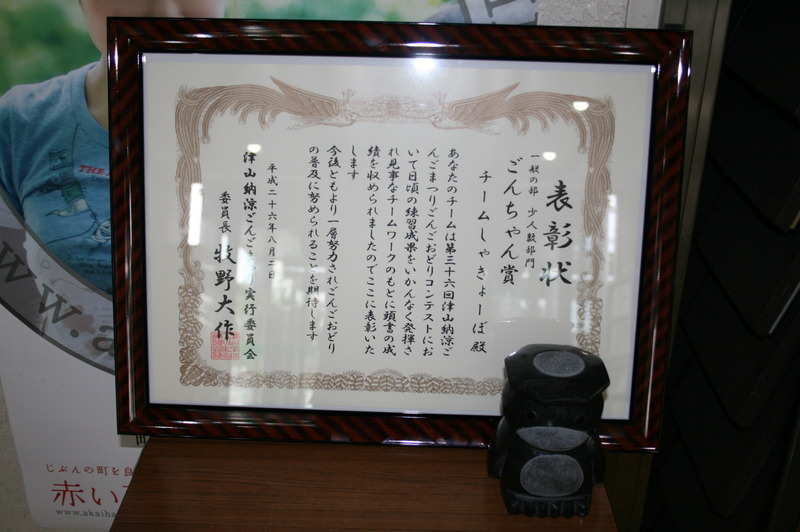 表彰状
一般の部 少人数部門
ごんちゃん賞
チームしゃきょーぼ殿
あなたのチームは第三十六回津山納涼ご
んごまつりごんごおどりコンテストにお
いて日頃の練習成果をいかんなく発揮さ
れ見事なチームワークのもとに頭書の成
績を収められましたのでここに表彰いた
します
今後ともより一層努力されごんごおどり
の普及に努められることを期待します
平成二十六年八月二日
津山納涼ごんごまつり実行委員会
委員長 牧野大作
じぶんの町を良
赤い
www.akaiha
THE
www.a